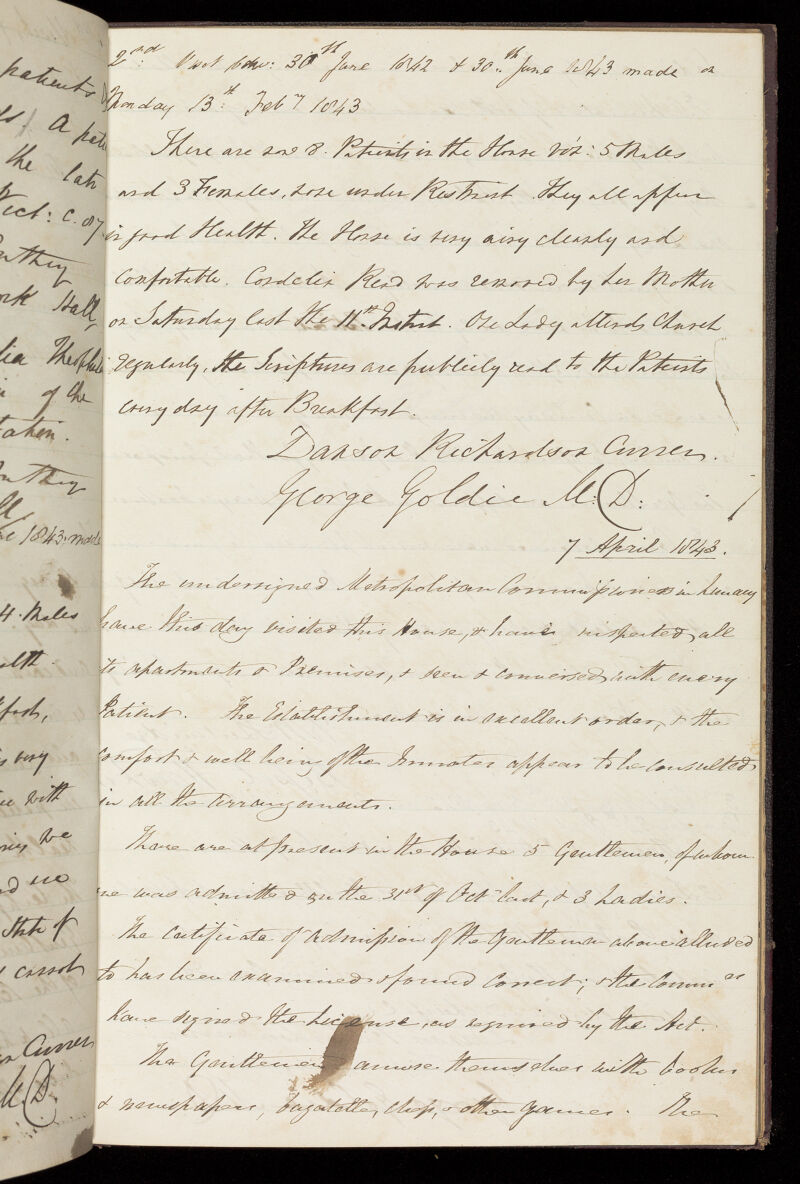 patients
2nd: Visit betw: 30th June 1842 & 30th June 1843 made on
Monday 13th Feby 1843
There are now 8. Patients in the House viz: 5 Males
and 3 Females, none under Restraint. They all appear
in good Health. The House is very airy cleanly and
Comfortable. Cordelia Read was removed by her Mother
on Saturday last the 11th Instant. One Lady attends Church
regularly, the Scriptures are publicly read to the Patients
every day after Breakfast.
Danson Richardson Currer.
George Goldie M.D:
7 April 1843.
The undersigned Metropolitan Commissioners in Lunacy
have this day visited this House, & having inspected all
its apartments & Premises, & seen & conversed with every
Patient. The Establishment is in excellent order, & the
comfort & well being of the Inmates appear to be consulted
in all the arrangements.
There are at present in the House 5 Gentlemen, of whom
one was admitted on the 31st of Oct last, & 3 Ladies.
The Certificate of admission of the Gentleman above alluded
to has been examined & found correct; & the Commrs
have signed the License, as required by the Act.
The Gentlemen amuse themselves with books
& newspapers, bagatelle, chess, & other games. The
A
the late
Hall,
of the
1843. made
4 Males
very
with
we
State of
cannot
Currer
M.D.